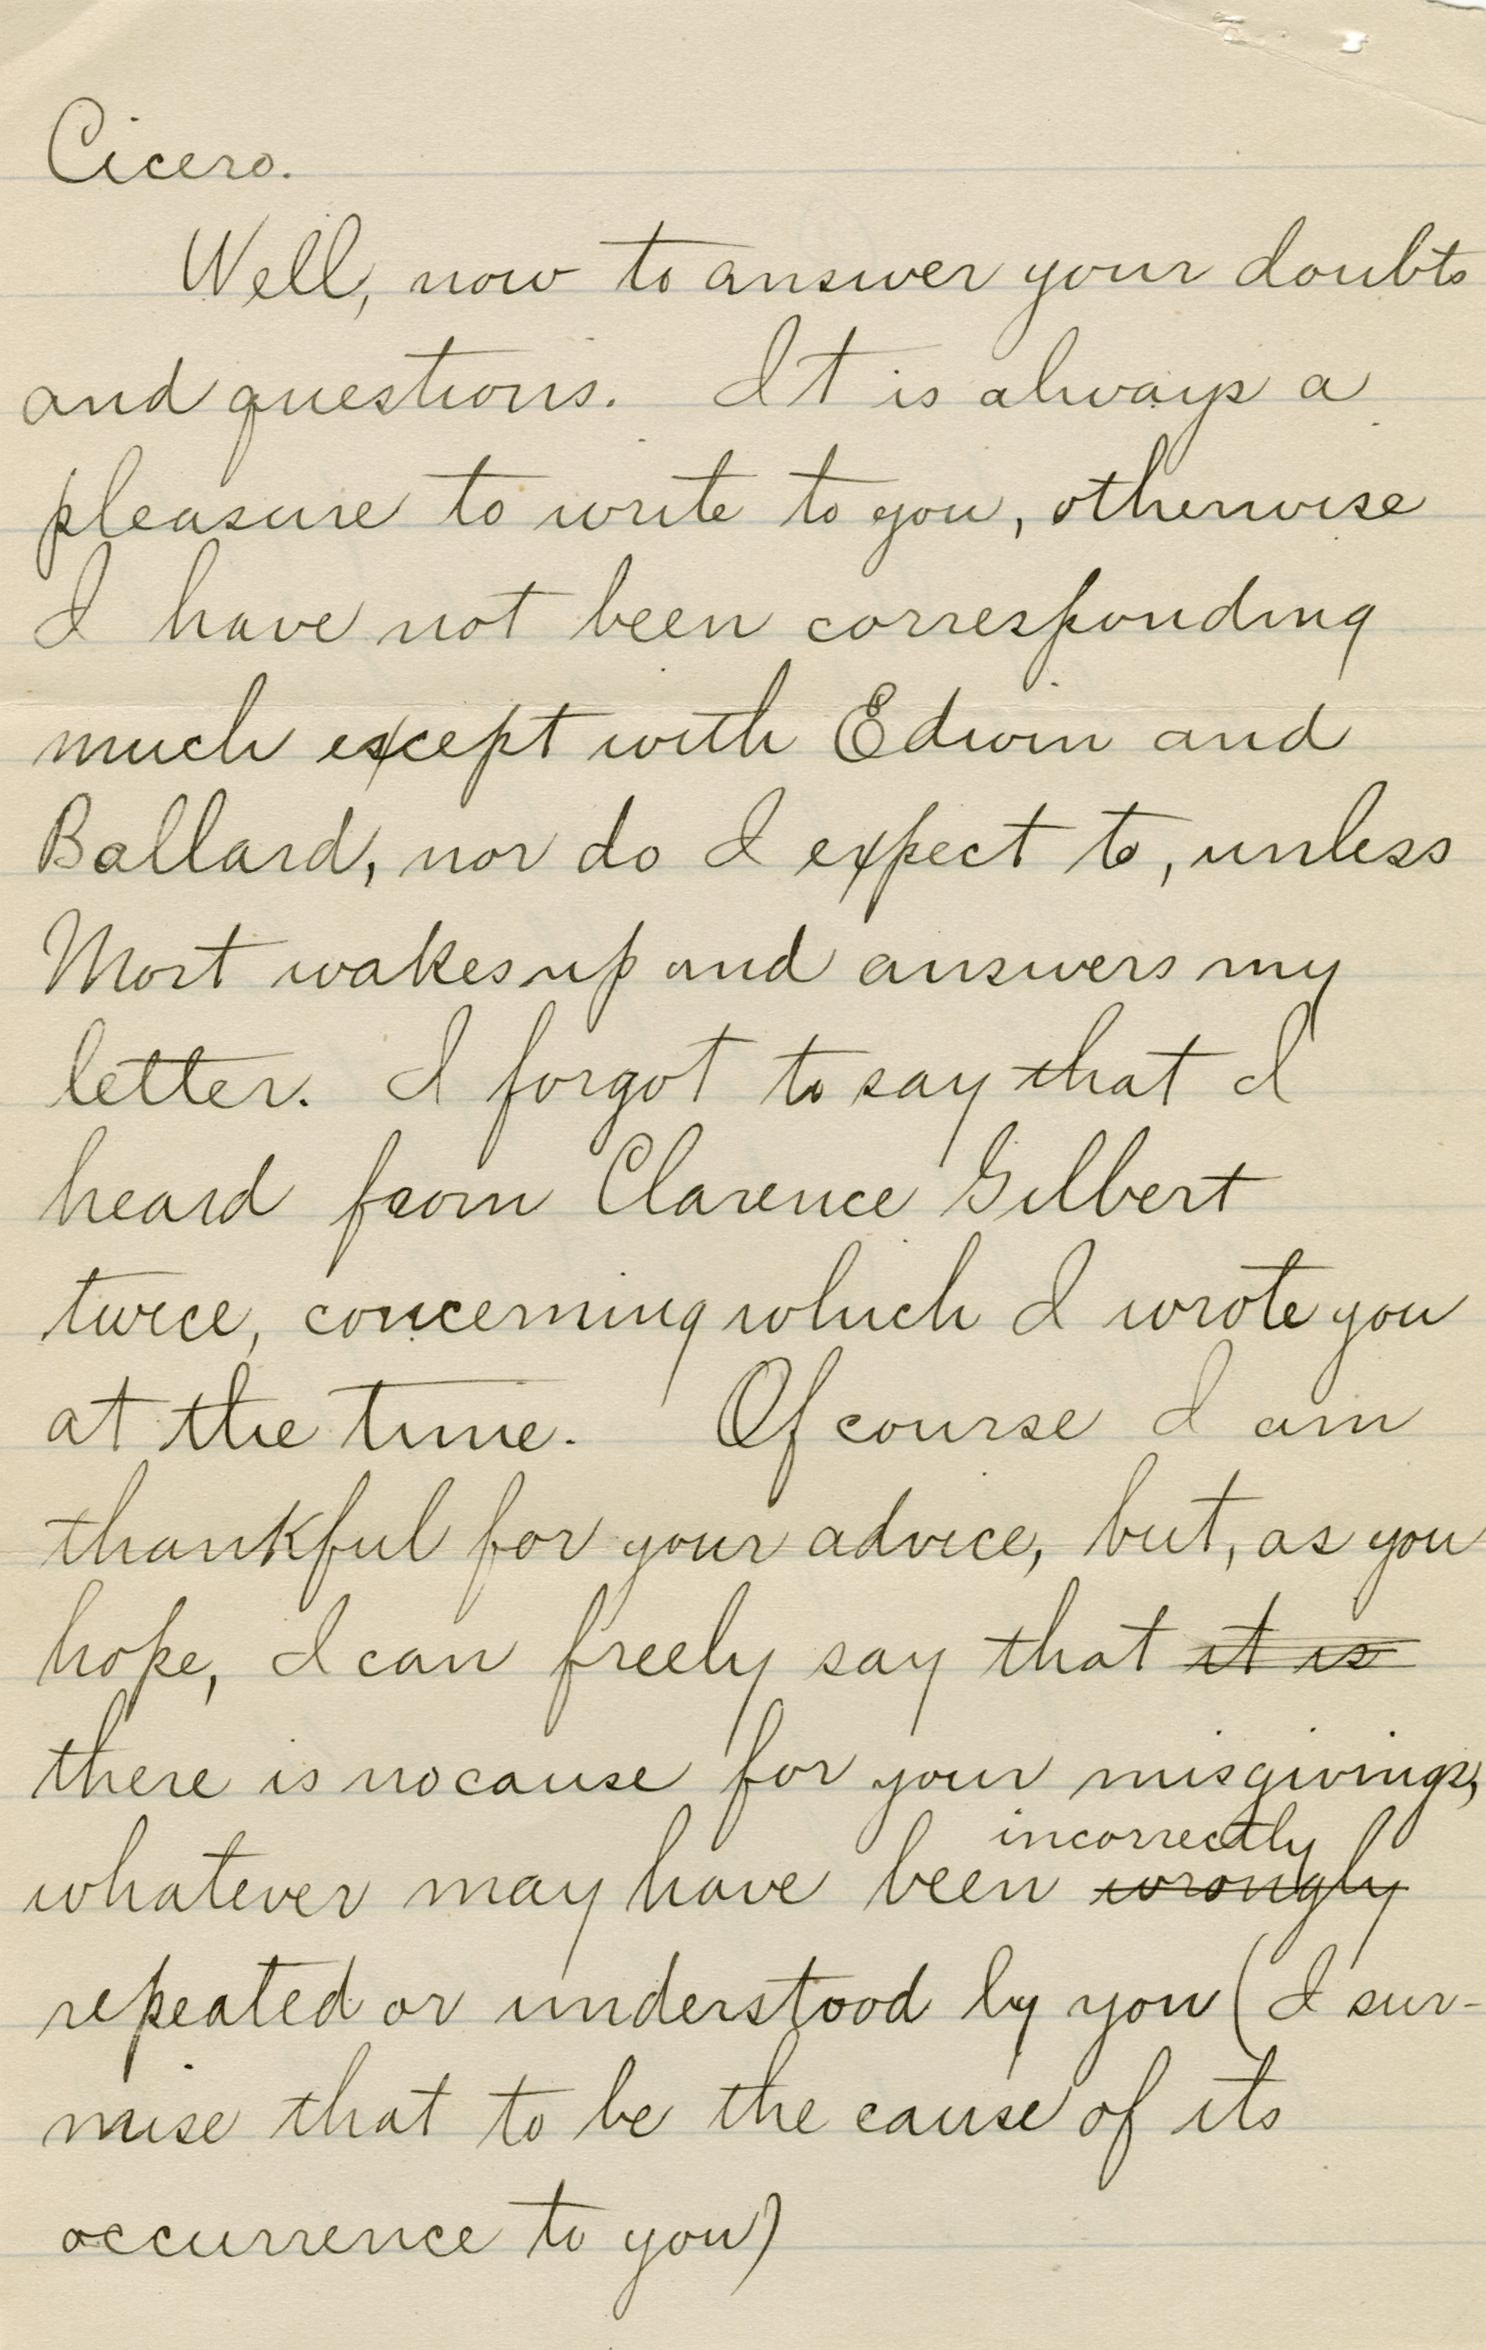 Cicero.
Well, now to answer your doubts
and questions. It is always a
pleasure to write to you, otherwise
I have not been corresponding
much except with Edwin and
Ballard, nor do I expect to, unless
Mort wakes up and answers my
letter. I forgot to say that I
heard from Clarence Gilbert
twice, concerning which I wrote you
at the time. Of course I am
thankful for your advice, but, as you
hope, I can freely say that it is
there is no cause for your misgivings,
incorrectly
whatever may have been wrongly
repeated or understood by you (I sur-
mise that to be the cause of its
occurrence to you)